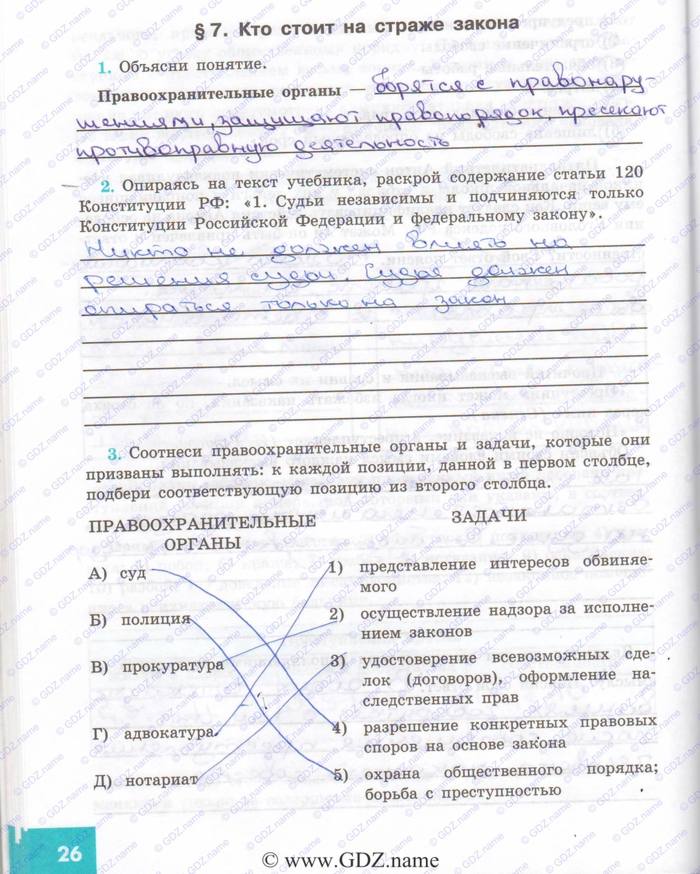 § 7. Кто стоит на страже закона
1. Объясни понятие.
Правоохранительные органы — борятся с правонару-
шениями, защищают правопорядок, пресекают
противоправную деятельность
2. Опираясь на текст учебника, раскрой содержание статьи 120
Конституции РФ: «1. Судьи независимы и подчиняются только
Конституции Российской Федерации и федеральному закону».
Никто не должен влиять на
решения судьи Судья должен
опираться только на закон
3. Соотнеси правоохранительные органы и задачи, которые они
призваны выполнять: к каждой позиции, данной в первом столбце,
подбери соответствующую позицию из второго столбца.
ПРАВООХРАНИТЕЛЬНЫЕ
ОРГАНЫ
А) суд
Б) полиция
В) прокуратура
Г) адвокатура
Д) нотариат
ЗАДАЧИ
1) представление интересов обвиняе-
мого
2) осуществление надзора за исполне-
нием законов
3) удостоверение всевозможных сде-
лок (договоров), оформление на-
следственных прав
4) разрешение конкретных правовых
споров на основе закона
5) охрана общественного порядка;
борьба с преступностью
26
© www.GDZ.name